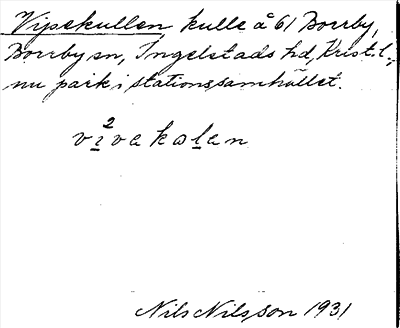 Vipekullen, kulle å 61 Borrby,
Borrby sn, Ingelstads hd, Krist. l.,
nu park i stationssamhället.
vi²vekolen
Nils Nilsson 1931